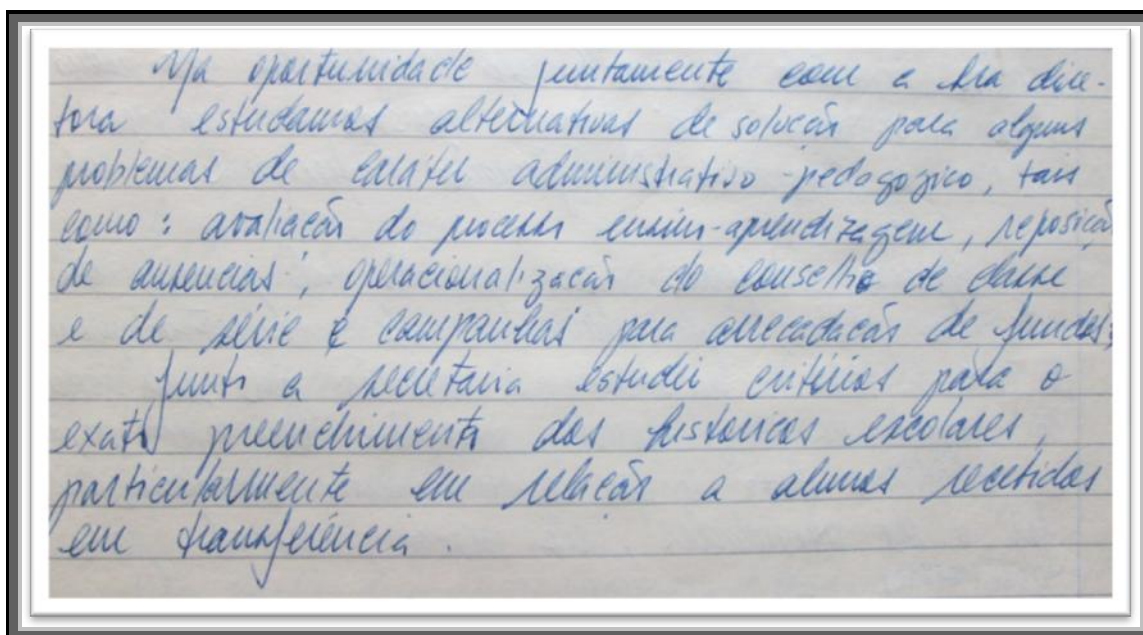 Na oportunidade juntamente com a sra dire-
tora estudamos alternativas de solução para alguns
problemas de caráter administrativo-pedagógico, tais
como: avaliação do processo ensino-aprendizagem, reposição
de ausências; operacionalização do conselho de classe
e de série e campanhas para arrecadação de fundos;
Junto a secretaria estudei critérios para o
exato preenchimento dos históricos escolares,
particularmente em relação a alunos recebidos
em transferência.